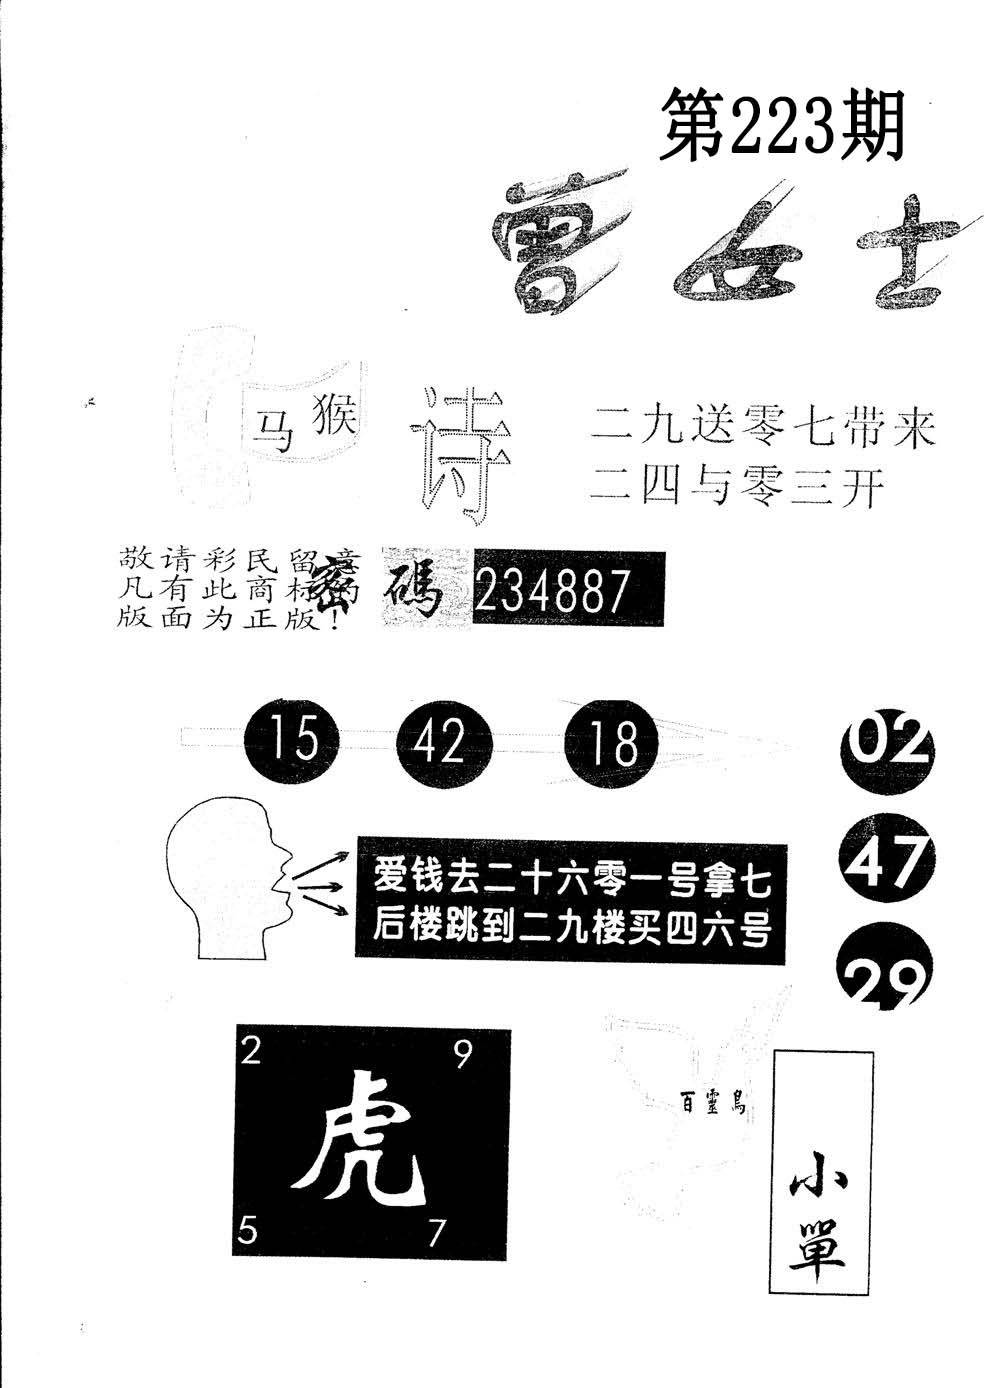 第223期
曾女士
马 猴
诗
二九送零七带来
二四与零三开
敬请彩民留意
凡有此商标的
版面为正版！
密碼
234887
15 42 18
02
47
29
爱钱去二十六零一号拿七
后楼跳到二九楼买四六号
2 9
虎
5 7
百靈鳥
小單